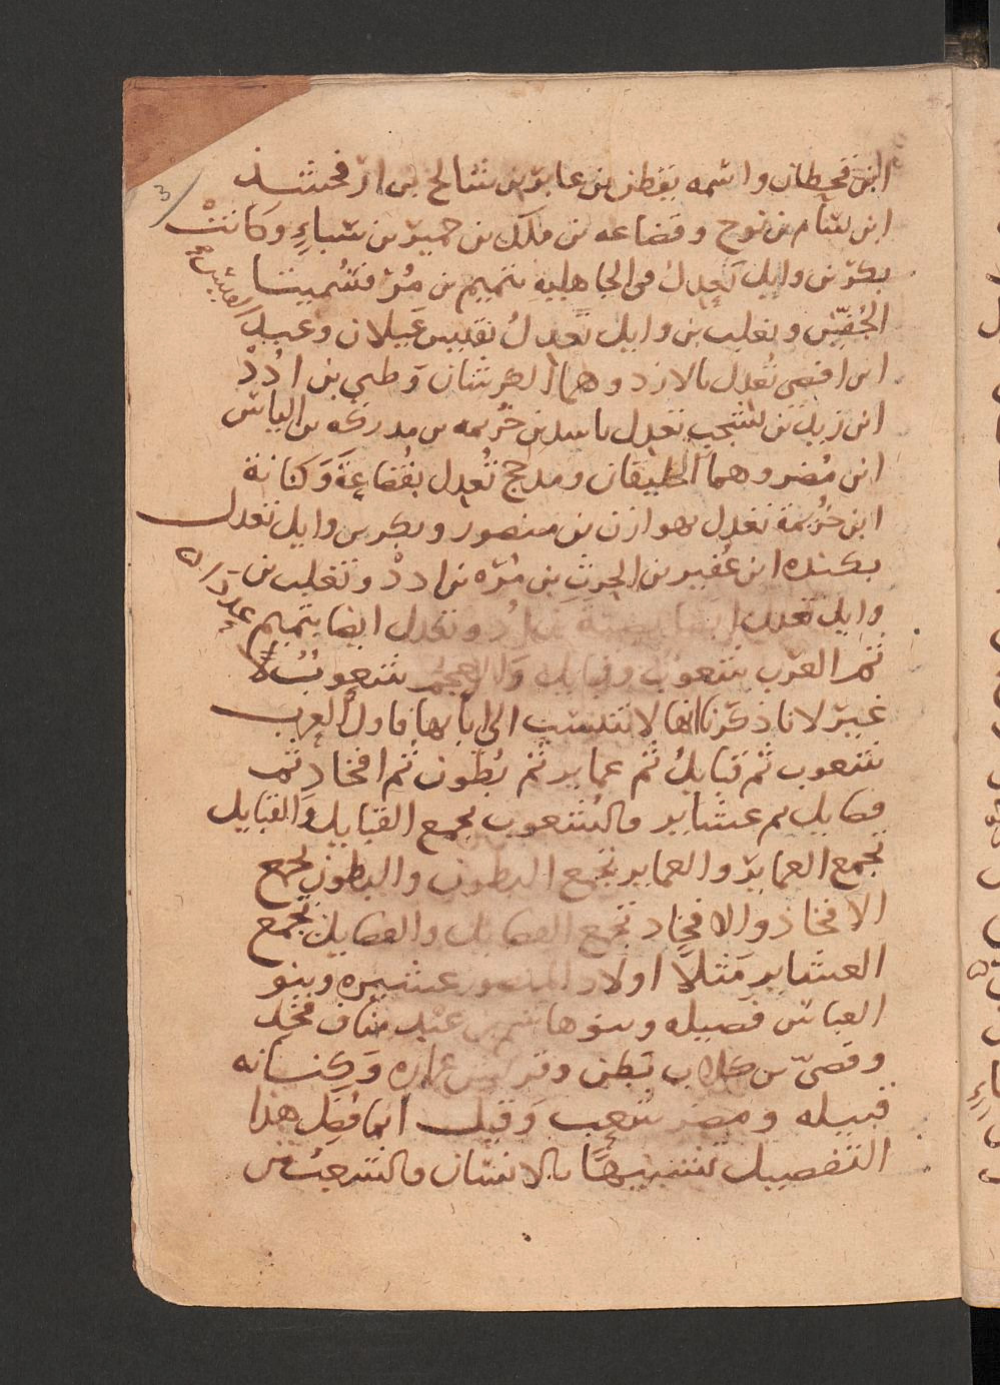 ابن قحطان واسمه يقطن بن عابر بن شالخ بن ارفخشذ
ابن سام بن نوح وقضاعه بن ملك بن حمير بن سباءٍ وكانتْ
بكر بن وايل تعدل فى الجاهلية بتميم بن مُرّ فسُميتا
الجُفّين وتغلب بن وايل تعدلُ بقيس عَيلان وعبد
ابن افصى تُعدل بالازد وهما الكرشان وَطيى بن اُدَدْ
ابن زيد بن يشجب تعدل باسد بن خزيمه بن مدركه بن الياس
ابن مُضر وهما الحليفان ومدحج تُعدل بقُضاعةَ وَكنانة
ابن خزيمة تعدل بهوازن بن منصور وبكر بن وايل تعدل
بكنده ابن عُفير بن الحرثِ بن مُرّه بن اددْ وتغلب بن
وايل تعدل ايضا بضبة بن اُد وتعدل ايضا بتميم
ثم العرب شعوب وقبايل وَالعجمُ شعوبٌ لا
غير لانا ذكرنا انها لا تنتسب الى ابايها فاول العرب
شعوب ثم قبايلُ ثم عماير ثم بُطون ثم افخاد ثم
فصايل ثم عشاير فالشعوب تجمع القبايل والقبايل
تجمع العماير والعماير تجمع البطون والبطون تجمع
الافخاذ والافخاد تجمع الفصايل والفصايل تجمع
العشاير مَثلاً اولاد عشيره وبنو
العباس فصيله وبنو هاشم بن عبد مناف فخد
وقصىّ بن كلاب بَطن وقريش عماره وَكنانه
قبيله ومضر شعب وَقيل انما فُصِّل هذا
التفصيل تشبيهًا بالانسان فالشعبُ من
3